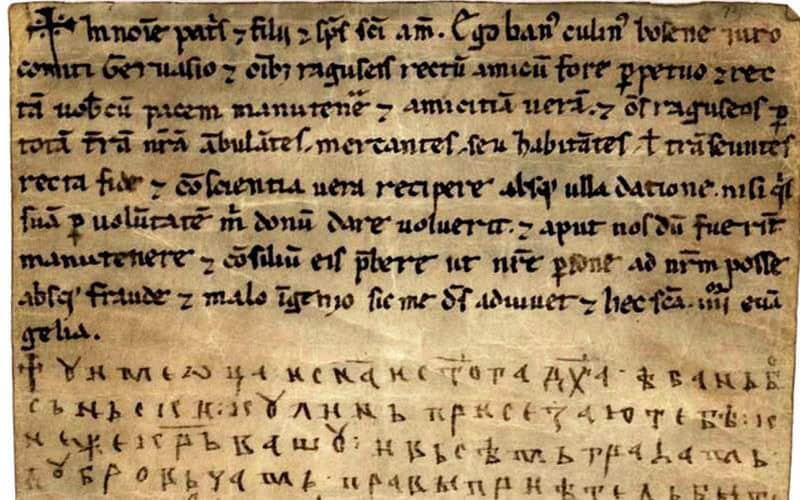 ✝ In noīe pat̄s ⁊ filii ⁊ sp̄s sc̄i am̄. Ego ban᾽ culin᾽ bosene iuro
comiti Geruasio ⁊ oīb; raguseis rectū amicū fore ꝑpetuo ⁊ rec
tā uob̄cū pacem manutene᷑ ⁊ amicitiā uerā. ⁊ oēs raguseos ꝑ
totā t̄rā nr̄ā ābulātes, mercantes, seu habitātes, ł trāseuntes
recta fide ⁊ cōscientia uera recipere absq᾽ ulla datione. nisi q̄s
suā ꝑ uolūtatē m̄ donū dare uoluerit. ⁊ aput nos dū fuerīt
manutenere ⁊ cōsiliū eis p̄bere ut nr̄e ꝑsone ad nr̄m posse
absq᾽ fraude ⁊ malo īgenio sic me d̄s adiuuet ⁊ hec sc̄a iiii͛ euā
gelia.
✝ Ꙋ имеѡцаисн͞аист͞огад͞ха· ѣбаньб
сьньски:кꙋлинь присезаютебѣ:к
нежекр͞ьвашꙋ:ивьсѣмьградамь·